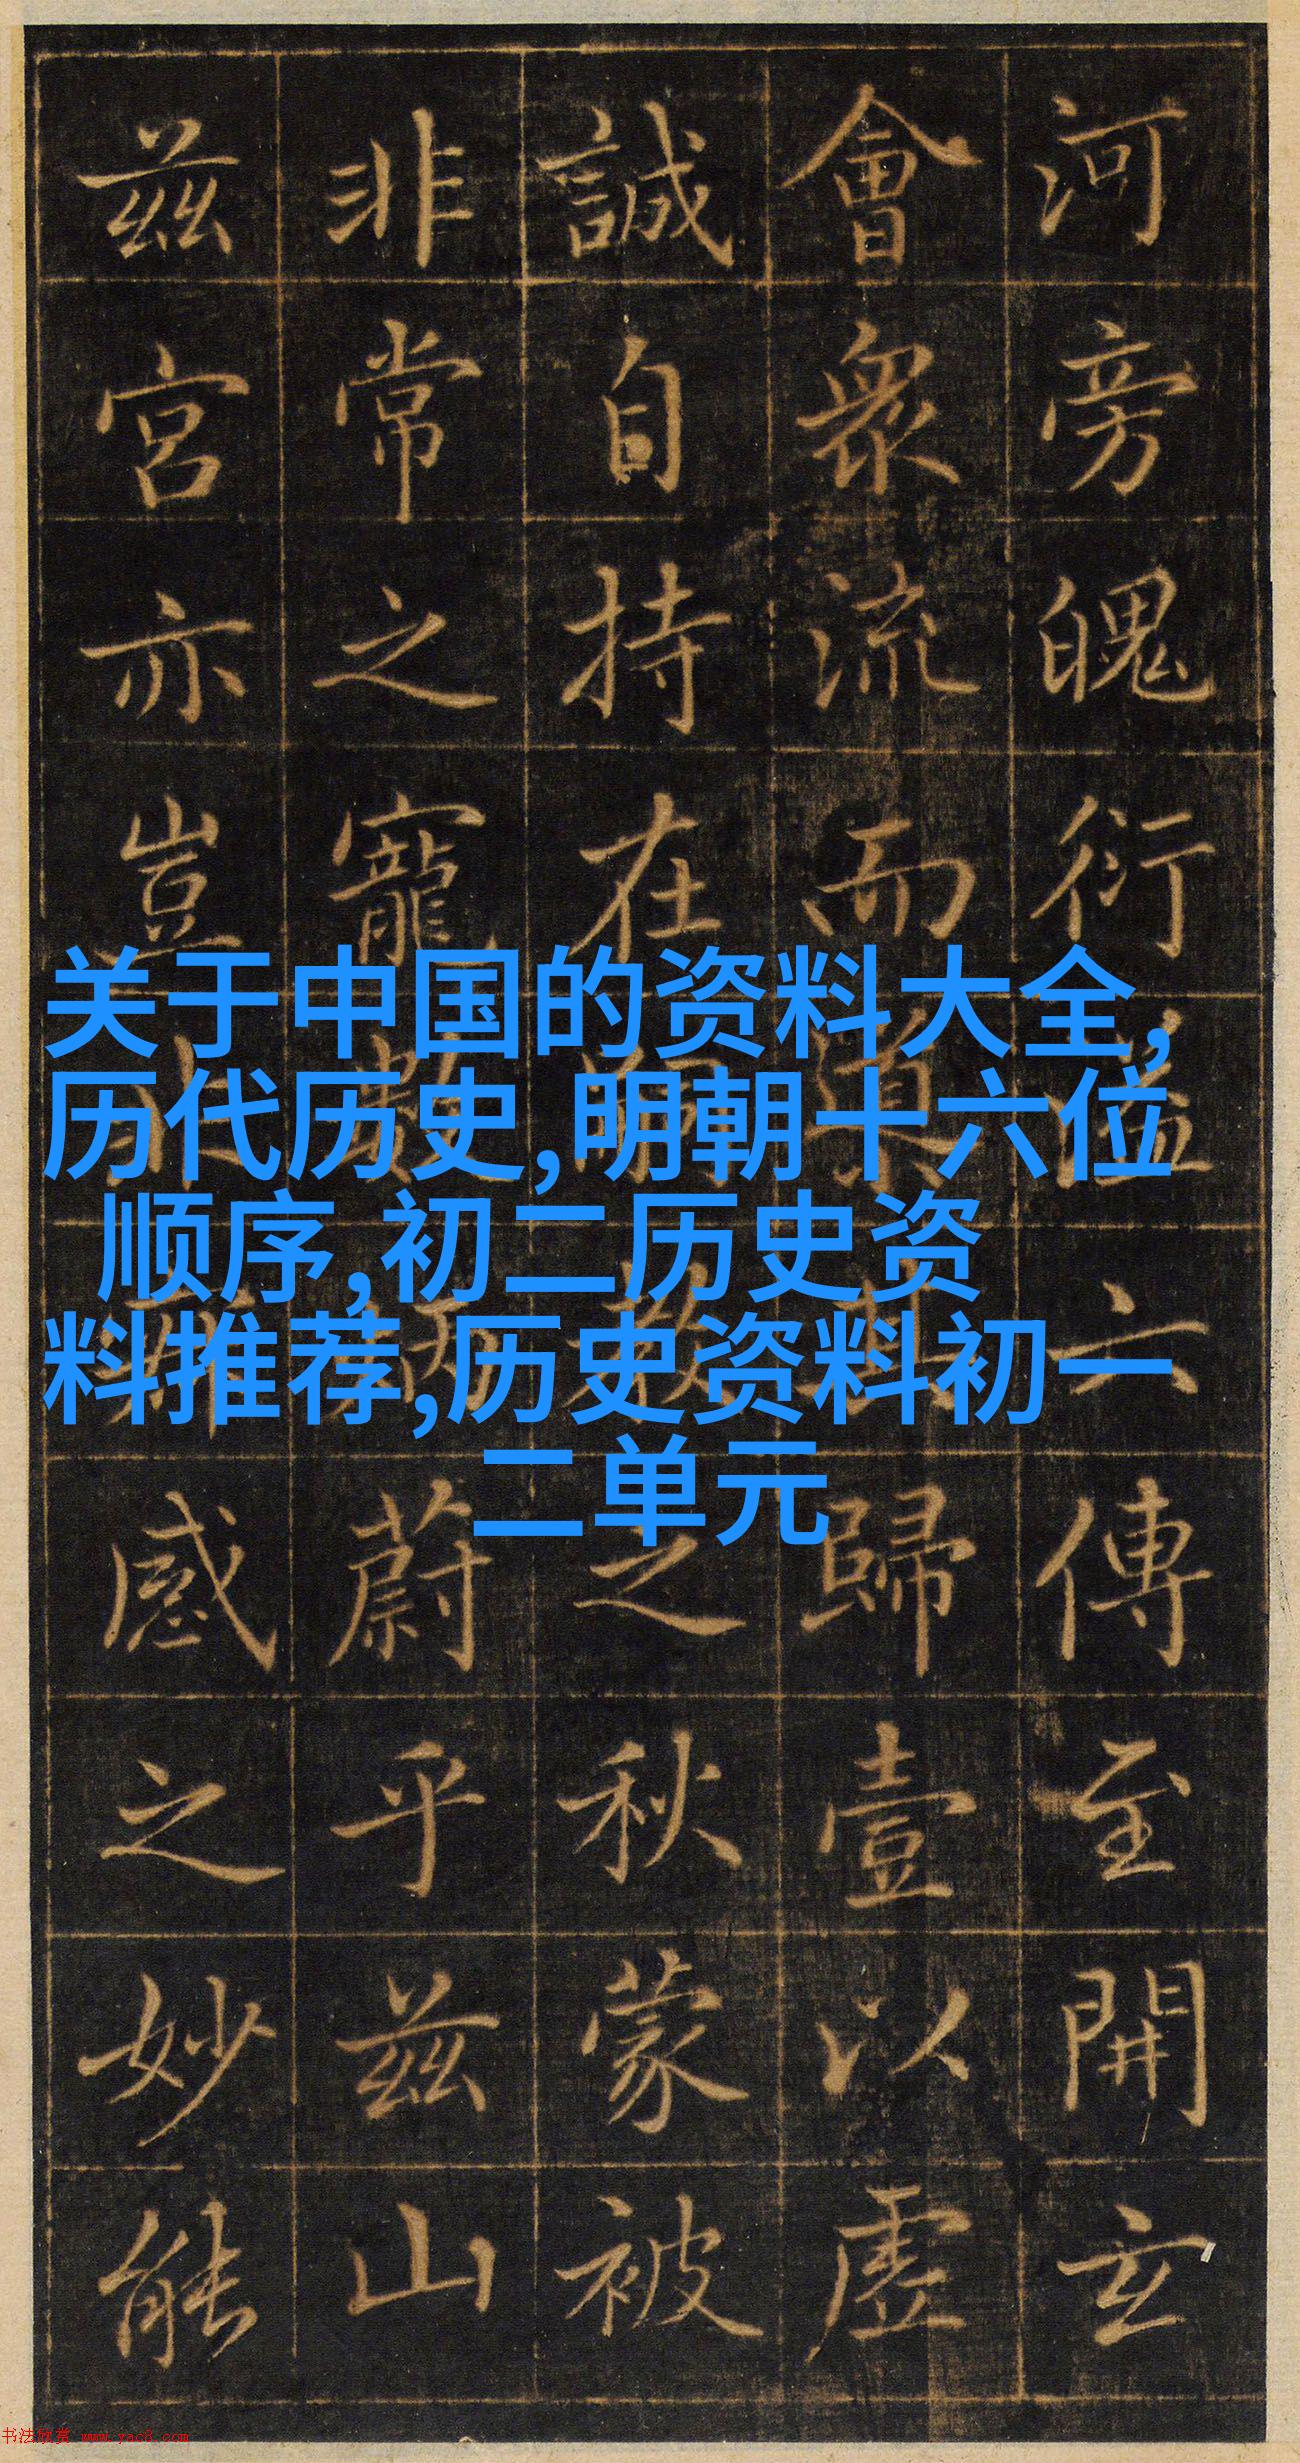 河旁魄衍六傳至開玄
會衆流而歸壹以虛
誠自持在之秋蒙被
非常之寵蔚乎兹山
兹宮亦豈感之妙能
关于中国的资料大全,
历代历史,明朝十六位
顺序,初二历史资
料推荐,历史资料初一
二单元
书法欣赏 www.yac8.com